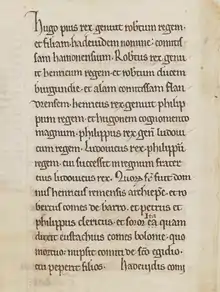 Hugo pius rex genuit rotbtum regem
et filiam hadeuidem nomine. comitis
sam hainonensium. Rotbtus rex genu
it henricum regem et rotbtum ducem
burgundie. et alam comitissam flan
drensem. henricus rex genuit philip
pum regem. et hugonem cognomento
magnum. philippus rex geñ ludoui
cum regem. Ludouicus rex philippū
regem. cui successit in regnum frater
eius ludouicus rex. Quorum fr̄s fuit dom
nus henricus remensis archiepc. et ro
bertus comes de barro. et petrus et
philippus clericus. et soror ita ea quam
duxit eustachius comes bolonie. quo
mortuo nupsit comiti de sc̄o egidio
cui peperit filios. hadeuidis comi